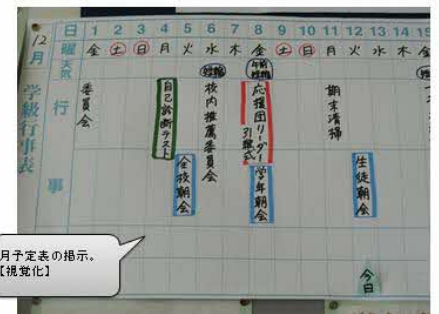 12月
学級行事表
日 1 2 3 4 5 6 7 8 9 10 11 12 13 14 15
曜 金 土 日 月 火 水 木 金 土 日 月 火 水 木 金
天気
行事
委員会
自己診断テスト
全校朝会
校内推薦委員会
応援団リーダー引継式
学年朝会
期末清掃
生徒朝会
今日
月予定表の掲示。
【視覚化】